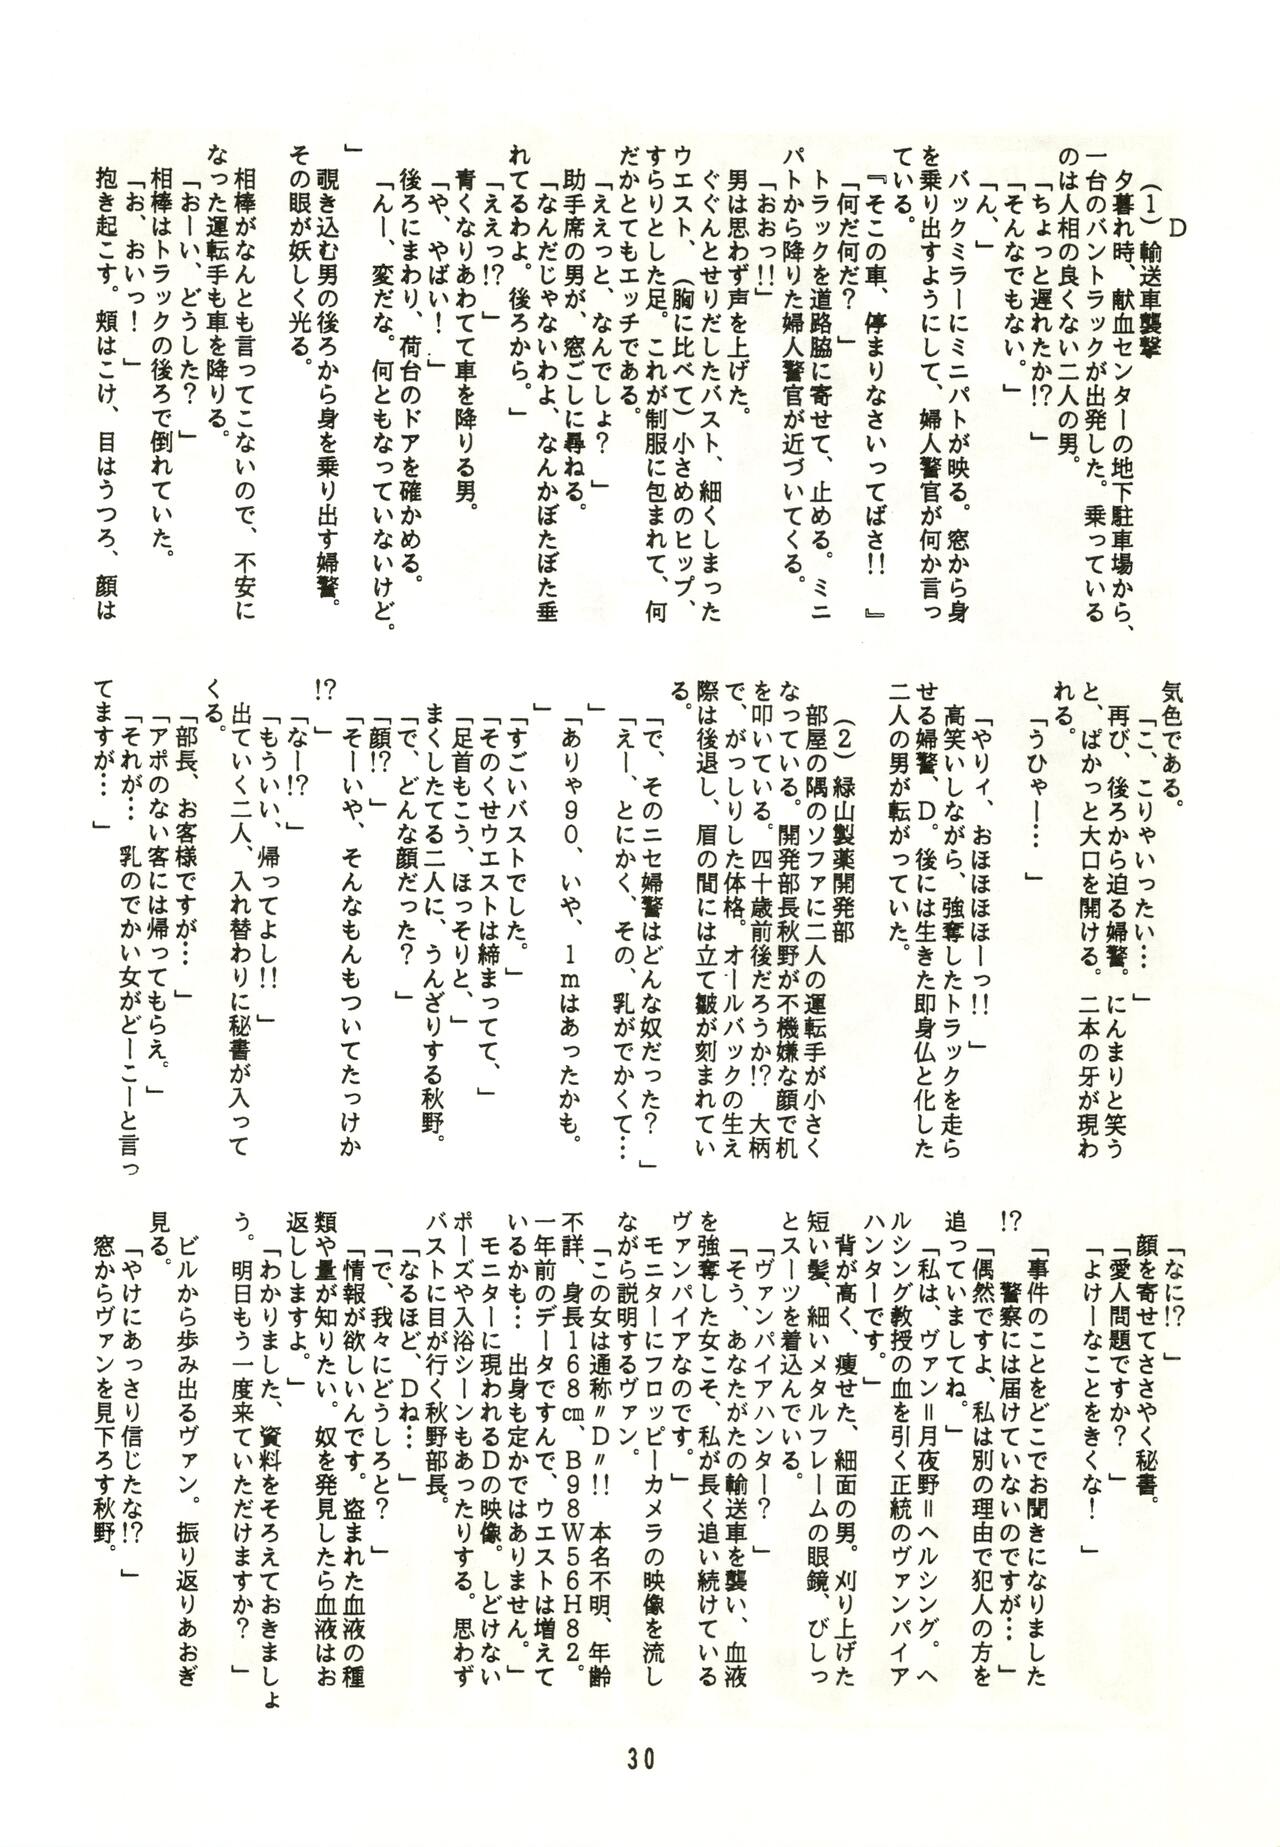 D
(1) 輸送車襲撃
夕暮れ時、献血センターの地下駐車場から、
一台のバントラックが出発した。乗っている
のは人相の良くない二人の男。
「ちょっと遅れたか!?　」
「そんなでもない。」
「ん、」
バックミラーにミニパトが映る。窓から身
を乗り出すようにして、婦人警官が何か言っ
ている。
『そこの車、停まりなさいってばさ!!　』
「何だ何だ？　」
トラックを道路脇に寄せて、止める。ミニ
パトから降りた婦人警官が近づいてくる。
「おおっ!!　」
男は思わず声を上げた。
ぐぐんとせりだしたバスト、細くしまった
ウエスト、（胸に比べて）小さめのヒップ、
すらりとした足。これが制服に包まれて、何
だかとてもエッチである。
「ええっと、なんでしょ？　」
助手席の男が、窓ごしに尋ねる。
「なんだじゃないわよ、なんかぼたぼた垂
れてるわよ。後ろから。　」
「ええっ!?　」
青くなりあわてて車を降りる男。
「や、やばい！　」
後ろにまわり、荷台のドアを確かめる。
「んー、変だな。何ともなっていないけど。
」
覗き込む男の後ろから身を乗り出す婦警。
その眼が妖しく光る。
相棒がなんとも言ってこないので、不安に
なった運転手も車を降りる。
「おーい、どうした？　」
相棒はトラックの後ろで倒れていた。
「お、おいっ！　」
抱き起こす。頬はこけ、目はうつろ、顔は
気色である。
「こ、こりゃいったい…　」
再び、後ろから迫る婦警。にんまりと笑う
と、ぱかっと大口を開ける。二本の牙が現わ
れる。
「うひゃー…　」
「やりィ、おほほほほーっ!!　」
高笑いしながら、強奪したトラックを走ら
せる婦警、D。後には生きた即身仏と化した
二人の男が転がっていた。
(2) 緑山製薬開発部
部屋の隅のソファに二人の運転手が小さく
なっている。開発部長秋野が不機嫌な顔で机
を叩いている。四十歳前後だろうか!?　大柄
で、がっしりした体格。オールバックの生え
際は後退し、眉の間には立て皺が刻まれてい
る。
「で、そのニセ婦警はどんな奴だった？　」
「えー、とにかく、その、乳がでかくて…
」
「ありゃ90、いや、1mはあったかも。
」
「すごいバストでした。」
「そのくせウエストは締まってて、　」
「足首もこう、ほっそりと、　」
まくしたてる二人に、うんざりする秋野。
「で、どんな顔だった？　」
「顔!?　」
「そーいや、そんなもんもついてたっけか
!?　」
「なー!?　」
「もういい、帰ってよし!!　」
出ていく二人、入れ替わりに秘書が入って
くる。
「部長、お客様ですが…　」
「アポのない客には帰ってもらえ。　」
「それが…　乳のでかい女がどーこーと言っ
てますが…　」
「なに!?　」
顔を寄せてささやく秘書。
「愛人問題ですか？　」
「よけーなことをきくな！　」
「事件のことをどこでお聞きになりました
!?　警察には届けていないのですが…　」
「偶然ですよ、私は別の理由で犯人の方を
追っていましてね。　」
「私は、ヴァン＝月夜野＝ヘルシング。ヘ
ルシング教授の血を引く正統のヴァンパイア
ハンターです。　」
背が高く、痩せた、細面の男。刈り上げた
短い髪、細いメタルフレームの眼鏡、びしっ
とスーツを着込んでいる。
「ヴァンパイアハンター？　」
「そう、あなたがたの輸送車を襲い、血液
を強奪した女こそ、私が長く追い続けている
ヴァンパイアなのです。　」
モニターにフロッピーカメラの映像を流し
ながら説明するヴァン。
「この女は通称〃D〃!!　本名不明、年齢
不詳、身長168cm、B98W56H82。
一年前のデータですんで、ウエストは増えて
いるかも…　出身も定かではありません。」
モニターに現われるDの映像。しどけない
ポーズや入浴シーンもあったりする。思わず
バストに目が行く秋野部長。
「なるほど、Dね…　」
「で、我々にどうしろと？　」
「情報が欲しいんです。盗まれた血液の種
類や量が知りたい。奴を発見したら血液はお
返ししますよ。　」
「わかりました、資料をそろえておきましょ
う。明日もう一度来ていただけますか？　」
ビルから歩み出るヴァン。振り返りあおぎ
見る。
「やけにあっさり信じたな!?　」
窓からヴァンを見下ろす秋野。
30